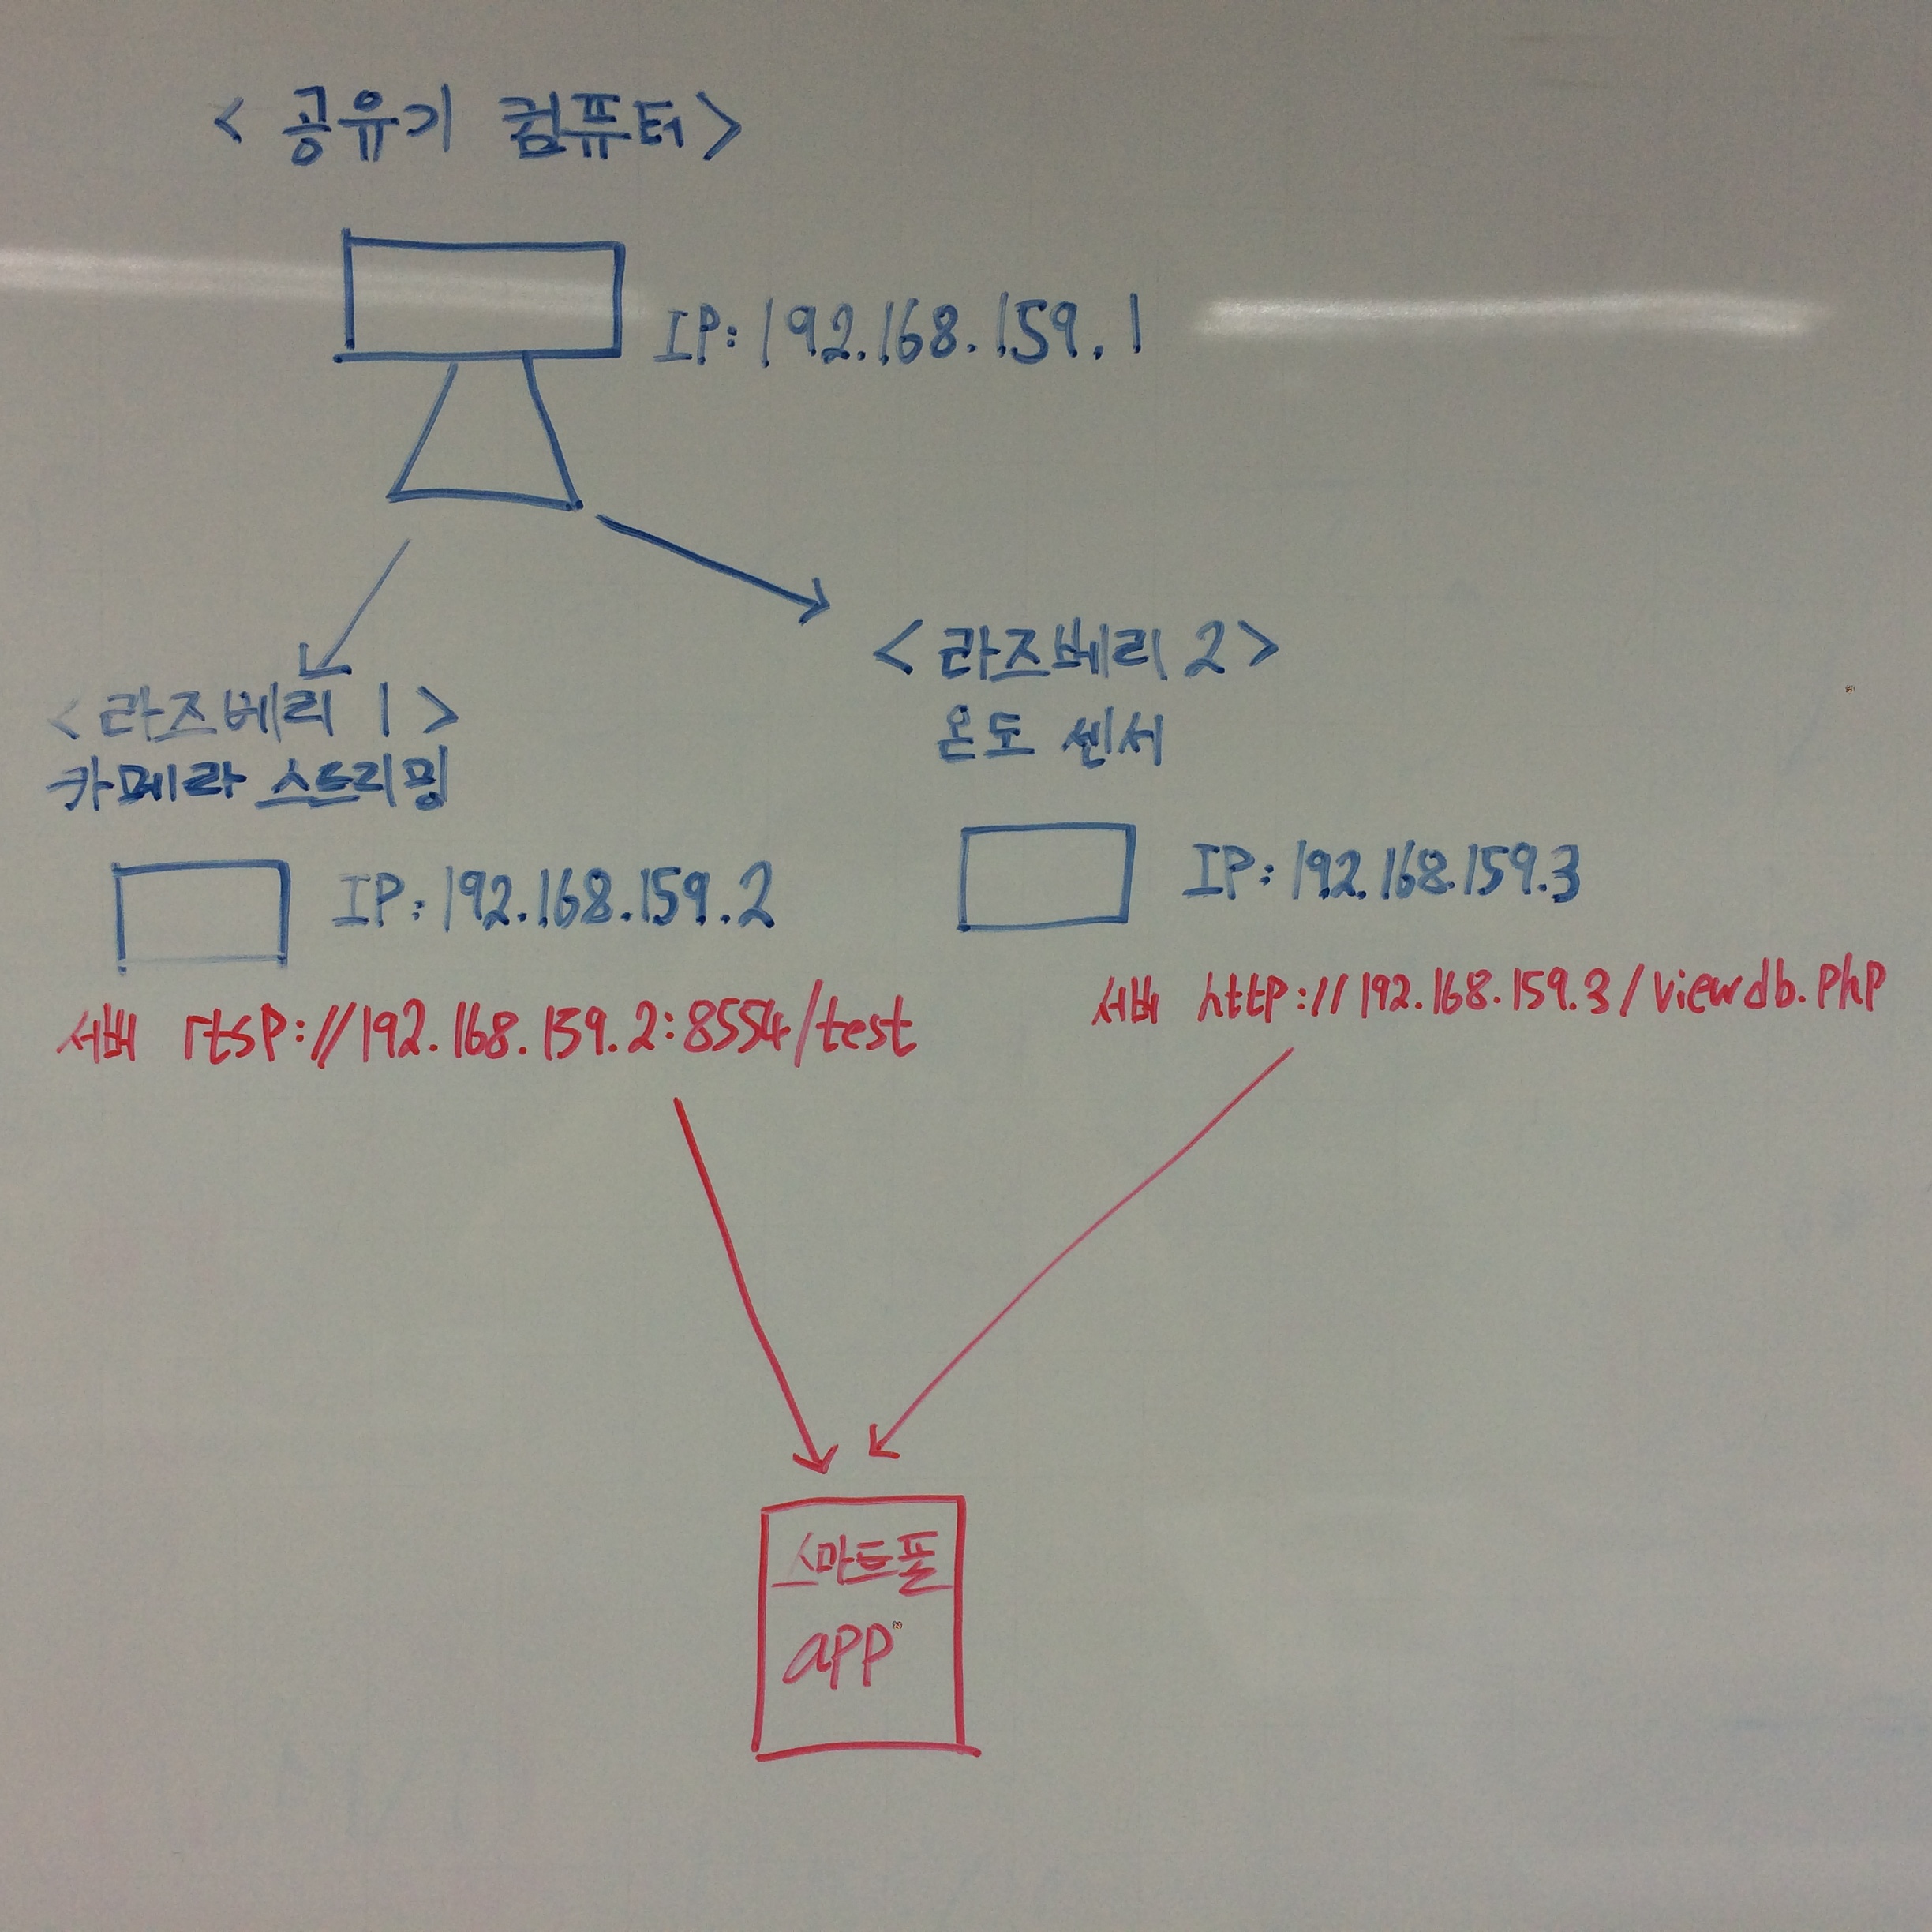 < 공유기 컴퓨터 >
IP: 192.168.159.1
< 라즈베리 1 >
카메라 스트리밍
IP: 192.168.159.2
서버 rtsp://192.168.159.2:8554/test
< 라즈베리 2 >
온도 센서
IP: 192.168.159.3
서버 http://192.168.159.3/viewdb.php
스마트폰
app